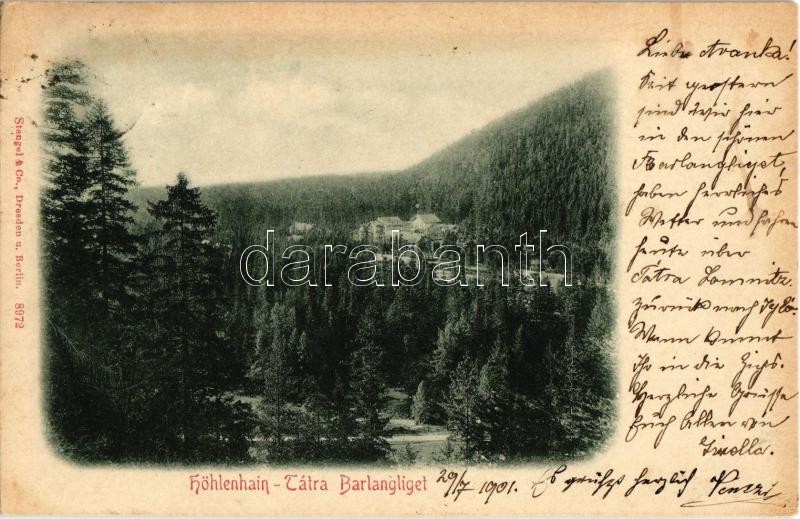 Stengel & Co., Dresden u. Berlin. 8972
darabanth
Höhlenhain - Tátra Barlangliget
Liebe
Seit gestern
sind wir hier
in den schönen
Barlangliget,
haben herrliches
Wetter und fahren
heute über
Tátra Lomnitz
zurück nach
Wann kommt
Ihr in die Zips.
Herzliche Grüsse
Euch Allen von
29/7 1901. Es grüsst herzlich